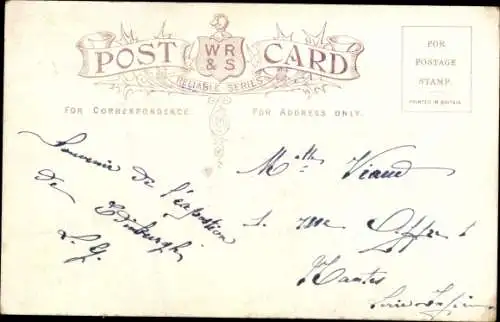 POST CARD
WR & S
RELIABLE SERIES
FOR CORRESPONDENCE.
FOR ADDRESS ONLY.
FOR
POSTAGE
STAMP.
PRINTED IN BRITAIN
Souvenir de l'exposition
de Edinburgh
L. G.
Viaud
Nantes